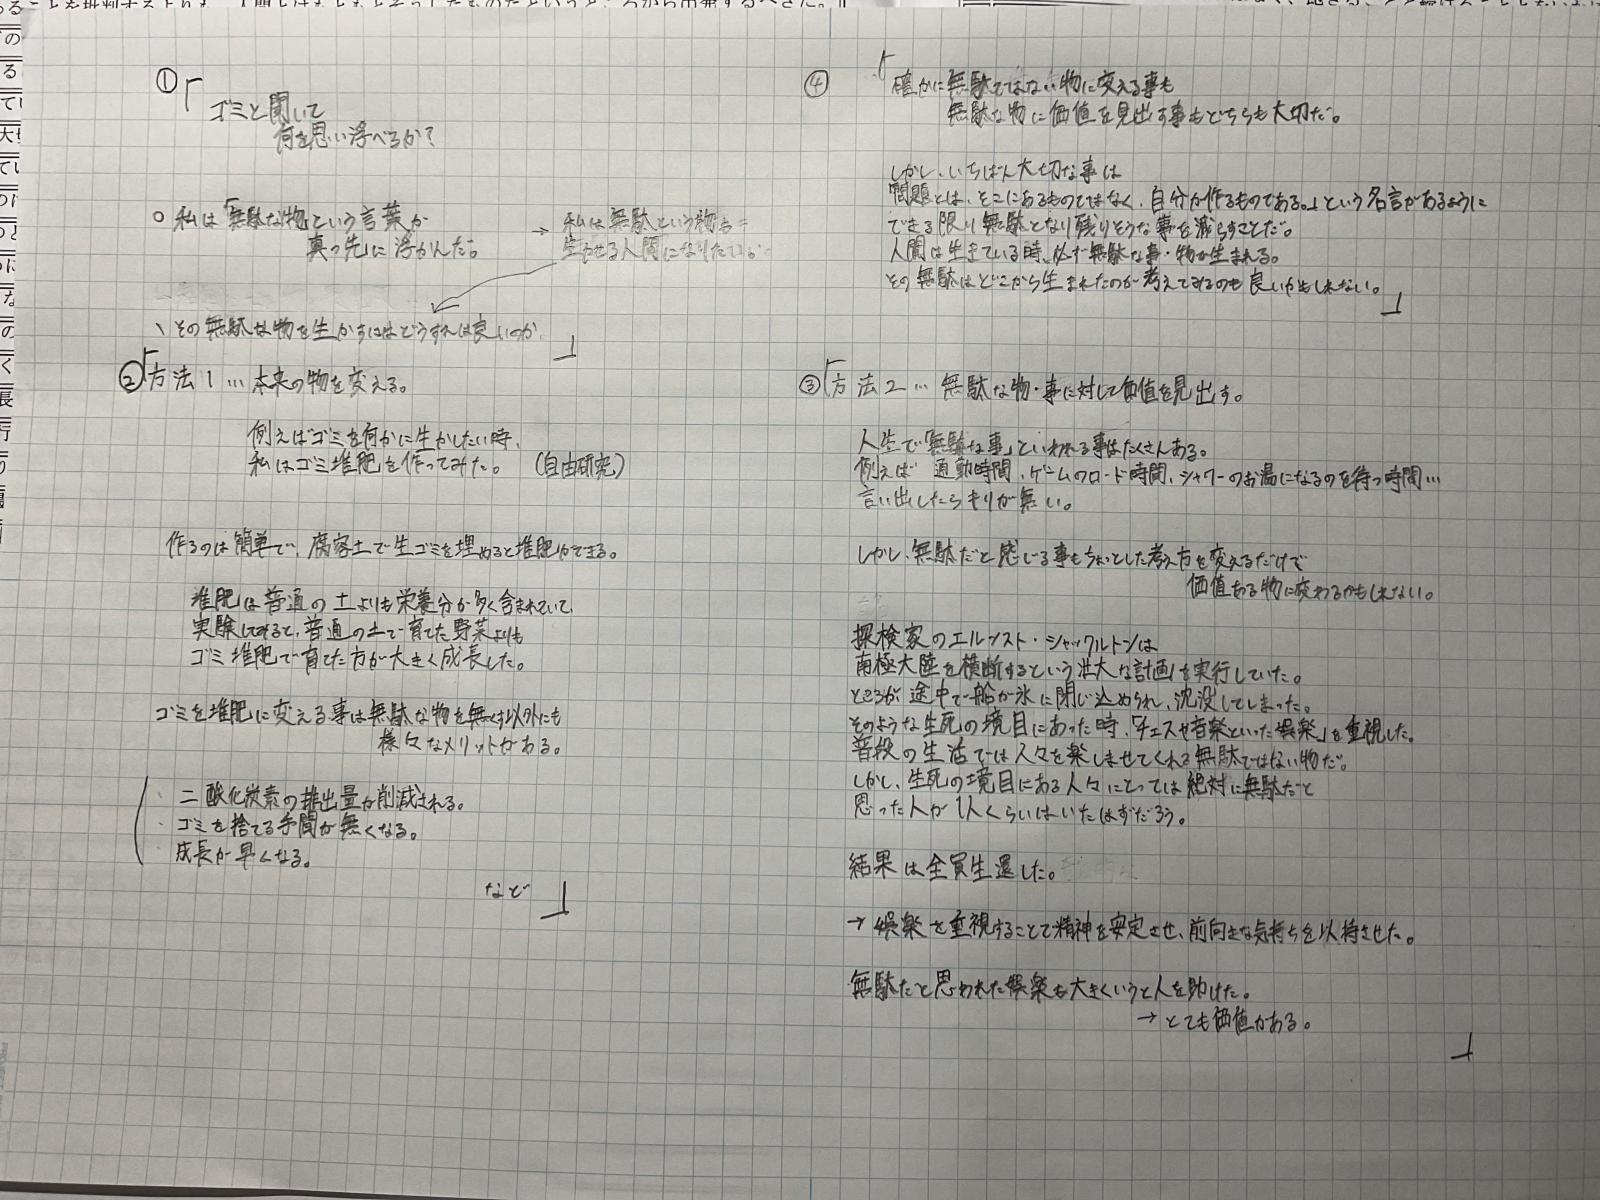 ①「
ゴミと聞いて
何を思い浮べるか?
○ 私は「無駄な物」という言葉が
真っ先に浮かんだ。
→ 私は無駄という物も
生かせる人間になりたい。
、その無駄な物を生かすにはどうすれば良いのか
」
②「方法1… 本来の物を変える。
例えばゴミを何かに生かしたい時、
私はゴミ堆肥を作ってみた。(自由研究)
作るのは簡単で、腐容土で生ゴミを埋めると堆肥ができる。
堆肥は普通の土よりも栄養分が多く含まれていて、
実験してみると、普通の土で育てた野菜よりも
ゴミ堆肥で育てた方が大きく成長した。
ゴミを堆肥に変える事は無駄な物を無くす以外にも
様々なメリットがある。
・二酸化炭素の排出量が削減される。
・ゴミを捨てる手間が無くなる。
・成長が早くなる。
など 」
③「方法2… 無駄な物・事に対して価値を見出す。
人生で「無駄な事」といわれる事はたくさんある。
例えば 通勤時間、ゲームのロード時間、シャワーのお湯になるのを待つ時間…
言い出したらキリが無い。
しかし、無駄だと感じる事もちょっとした考え方を変えるだけで
価値ある物に変わるかもしれない。
探検家のエルンスト・シャックルトンは
南極大陸を横断するという洪大な計画を実行していた。
ところが途中で船が氷に閉じ込められ、沈没してしまった。
そのような生死の境目にあった時、「チェスや音楽といった娯楽」を重視した。
普段の生活では人々を楽しませてくれる無駄ではない物だ。
しかし、生死の境目にある人々にとっては絶対に無駄だと
思った人が1人くらいはいたはずだろう。
結果は全員生還した。
→ 娯楽を重視することで精神を安定させ、前向きな気持ちを以持させた。
無駄だと思われた娯楽も大きくいうと人を助けた。
→ とても価値がある。
」
④「確かに無駄ではない物に変える事も
無駄な物に価値を見出す事もどちらも大切だ。
しかし、いちばん大切な事は
問題とは、そこにあるものではなく、自分が作るものである。」という名言があるように
できる限り無駄となり残りそうな事を減らすことだ。
人間は生きている時、必ず無駄な事・物が生まれる。
その無駄はどこから生まれたのか考えてみるのも良いかもしれない。
」